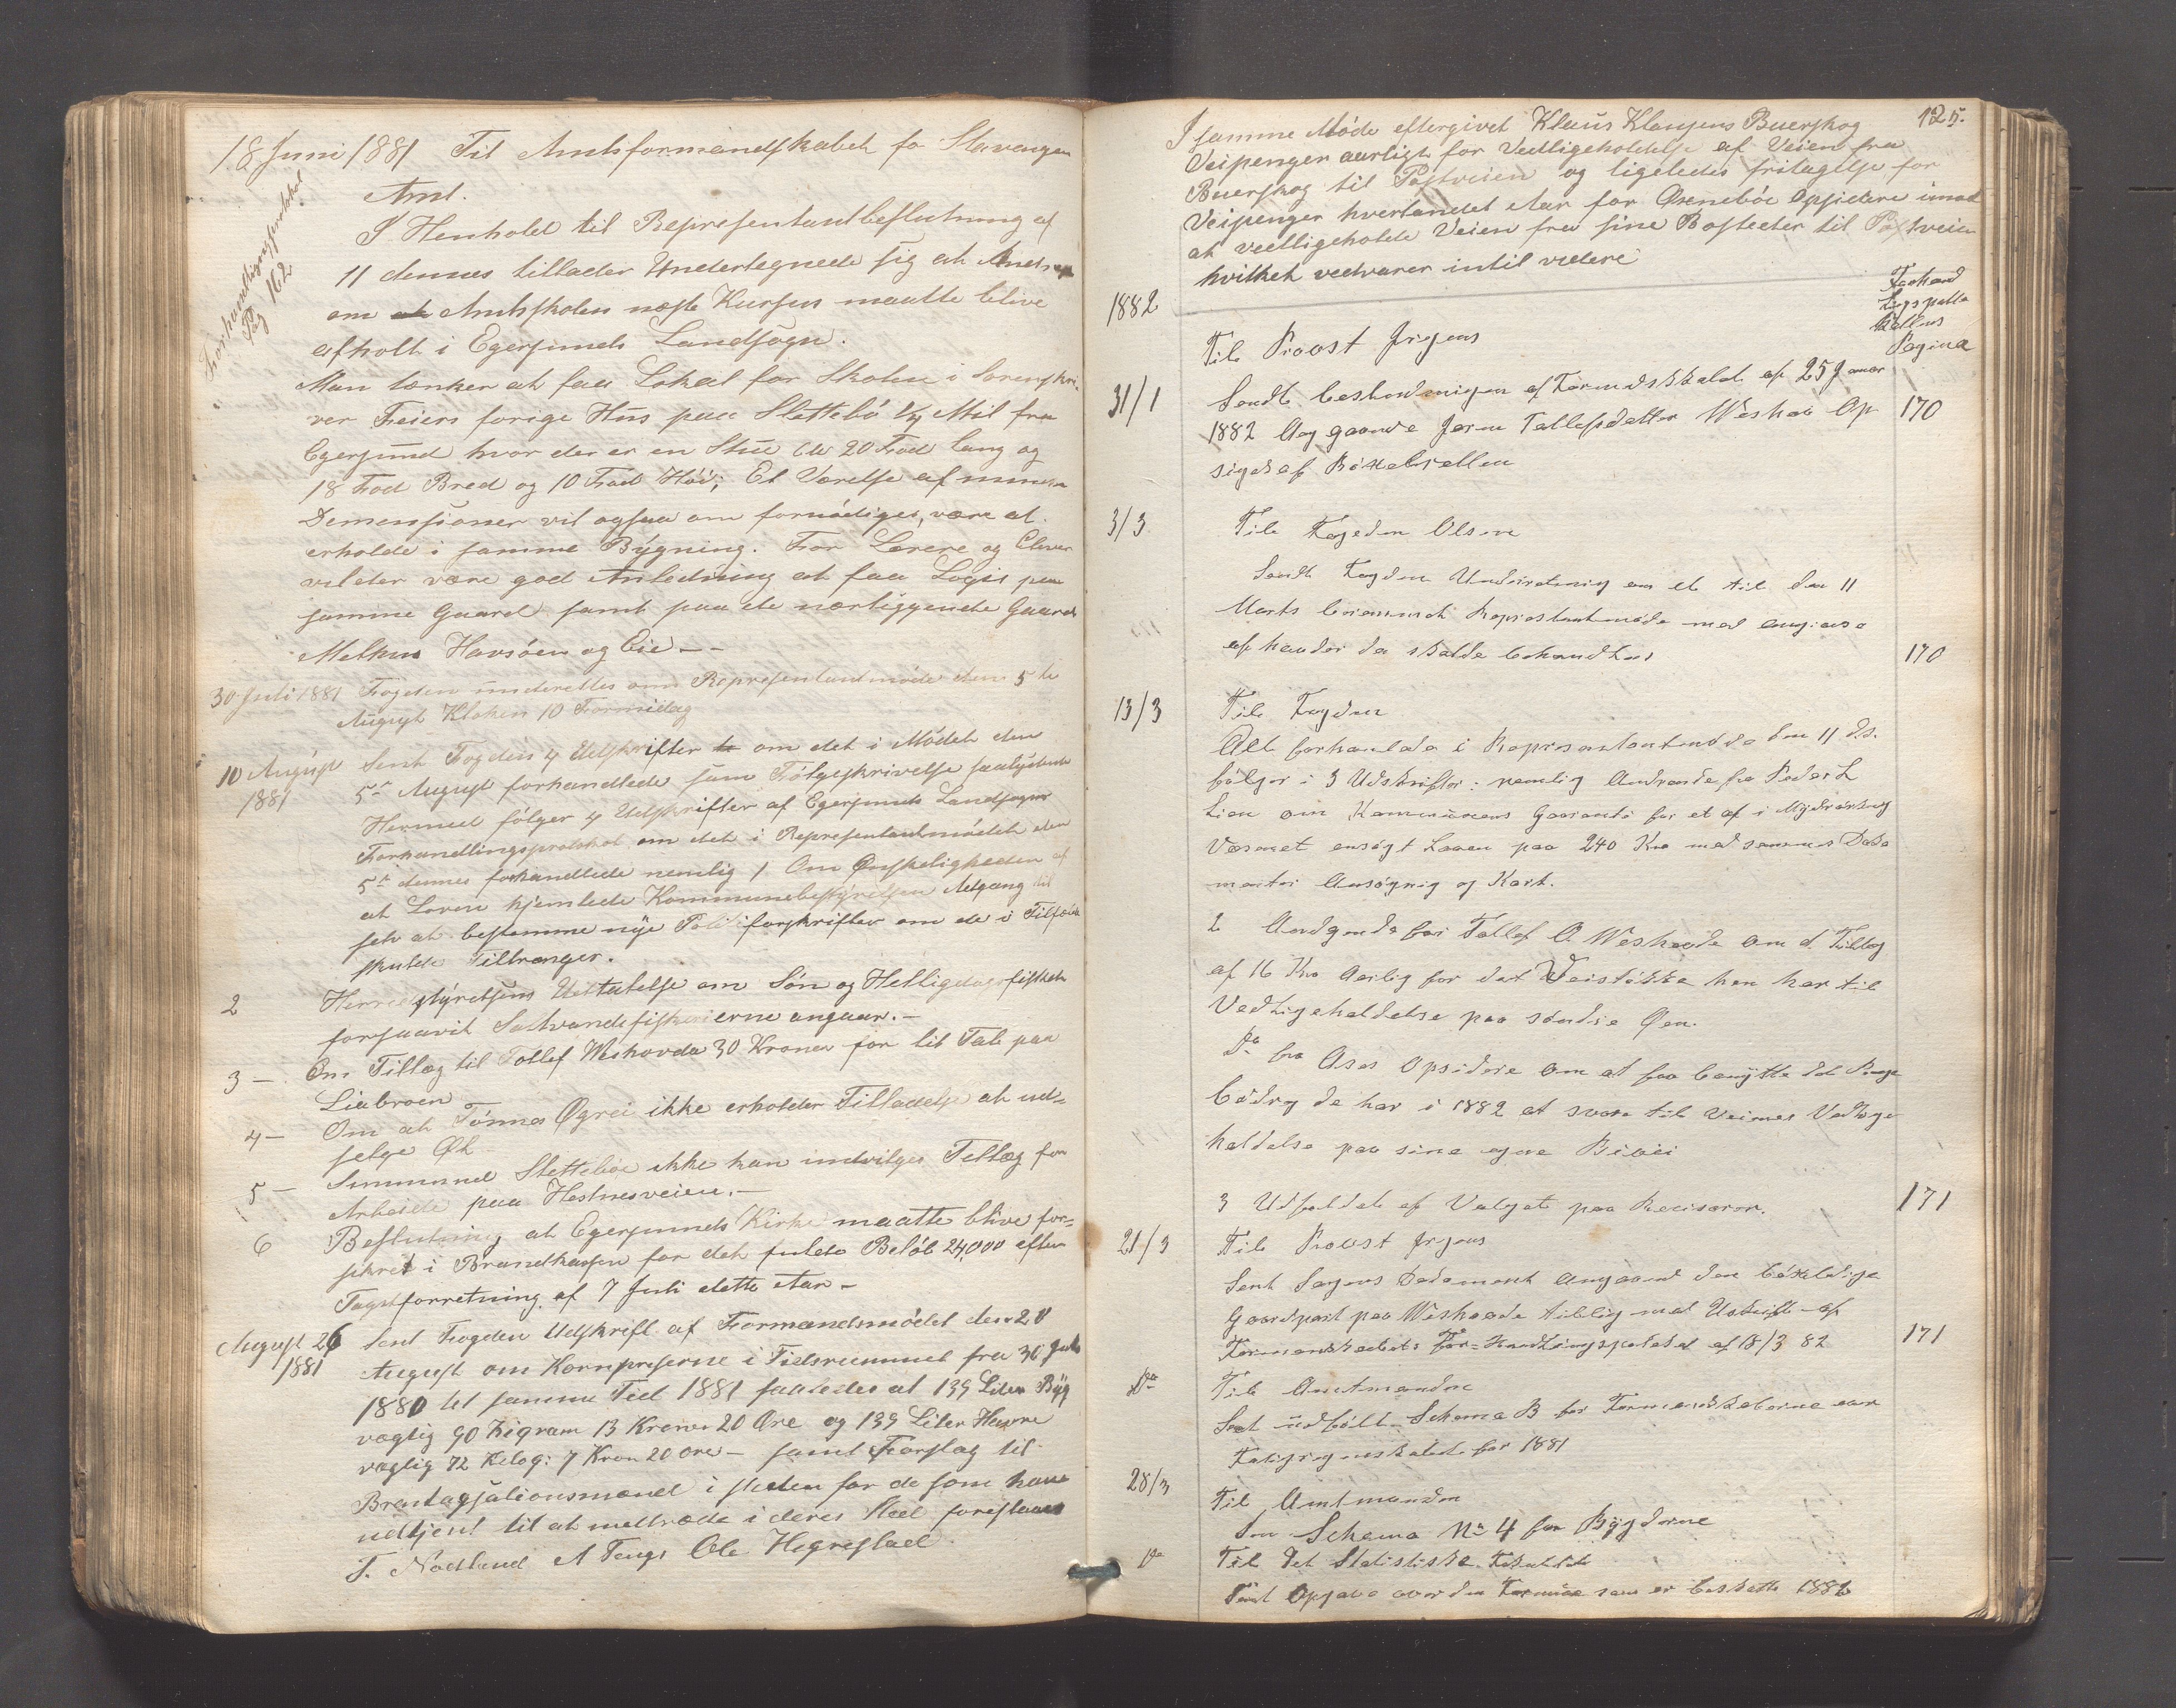 18 Juni 1881 Til Amtsformandskabet for Stavanger
Amt.
Forhandlingsprotokol
Pag 162
I Henhold til Representantbeslutning af
11 dennes tillader Undertegnede sig at
om at Amtskolens næste Kursus maatte blive
afholt i Egersunds Landsogn.
Man tænker at faa Lokal for Skolen i Sorenskri-
ver Feiers forige Hus paa Slettebö 1/4 Mil fra
Egersund hvor der er en Stue 20 Fod lang og
18 Fod Bred og 10 Fod Höi; Et Værelse af mindre
Demensioner vil ogsaa om fornödiges, være at
erholde i samme Bygning. For Lærere og Elever
vil der være god Anledning at faa Logis paa
samme Gaard samt paa de nærliggende Gaarde
Melhus Havsöen og Eie —
30 Juli 1881 Fogden underettes om Representantmöde den 5te
August Klokken 10 Formidag
10 August Sent Fogden 4 Udskrifter om det i Mödet den
1881 5te August forhandlede som Fölgeskrivelse saalydende
Hermed fölger 4 Udskrifter af Egersunds Landsogns
Forhandlingsprotokol om det i Representantmödet den
5te dennes forhandlede nemlig 1 Om Önskeligheden af
at Loven hjemlede Kommunebestyrelsen Adgang til
selv at bestemme nye Politiforskrifter om de i Tilfælde
skulde Tiltrænges.
2 Herredstyrelsens Udtalelse om Sön og Helligdagsfisket
forsaavit Saltvandsfiskerierne angaar. —
3 — Om Tillæg til Tollef Weshovde 30 Kroner for lit Tab paa
Liabroen
4 — Om at Tönnes Ögrei ikke erholder Tilladelse at ud=
selge Öl
5 — Simmund Sletteböe ikke kan indvilges Tellæg for
Arbeide paa Hestnesveien. —
6 Beslutning at Egersunds Kirke maatte blive for=
skret i Brandkassen for det fulde Belöb 24,000 efter
Taxtforretning af 7 Juli dette Aar —
August 26 Sent Fogden Udskrift af Formandsmödet den 20
1881 August om Kornpriserne i Tidsrummet fra 30 Juli
1880 til samme Tid 1881 saaledes at 139 Liter Byg
vægtig 90 Kigram 13 Kroner 20 Öre og 139 Liter Havre
vægtig 72 Kilog: 7 Kron 20 öre — samt Forslag til
Brantagsationsmænd i steden for de som have
udtjent til at inettræde i deres Sted foreslaaes
T. Nodland A Tengs Ole Hegrestad
125.
I samme Möde eftergivet Klaus Klausens Buerskog
Veipenger aarligt for Vedligeholdelse af Veien fra
Buerskog til Postveien og ligeledes fritagelse for
Veipenger hvertandet Aar for Örenböe Opsidere imod
at vedligeholde Veien fra sine Bosteder til Postveien
hvilket vedvarer intil videre
1882
Pagina
Til Provst Jrgens
31/1 Sendt af Formdskabet af 25 Januar
1882 Angaaende Tallefsdatter Weshov Op 170
sigelse af
3/3 Til Fogden Olsen
Sendt Fogden Underretning om et til den 11
Marts Representantmöde med angivelse
af hvad der skulde behandles 170
13/3 Til Fogden
Alt forhanlede i Representantmöde den 11 ds.
fölger i 3 Udskrifter: nemlig Andragende fra Peder L
Lien om Kommunens Garanti for et af i Myrdyrkning
Væsenet ansögt Laan paa 240 Kro med sammes Doku
menter Ansögnig og Kart.
2 fra Tollef A Weshovde om et Tillæg
af 16 Kro Aarlig for det Veistökke han har til
Vedligeholdelse paa söndre Öen.
Do fra Aases Opsidere om at faa benytte det Penge
bidrag de har i 1882 at svare til Veienes Vedlige
holdelse paa sine egne Bivei
3 Udfaldet af Valget paa Revisorer. 171
21/3 Til Provst Jrgens
Sent Sagens Dokument Angaaend den
Gaardpart paa Weshovde tillig med Udskrift af
Formandskabets For=handlingsprotokol af 18/3 82 171
Do Til Amtmanden
Sent udfölt Schema B for Formandskaberne
for 1881
28/3 Til Amtmanden
Sen Schema No 4 for Bygderne
Do Til Det Statistiske
Sent Opgave over den Formue som er beskatte 1882